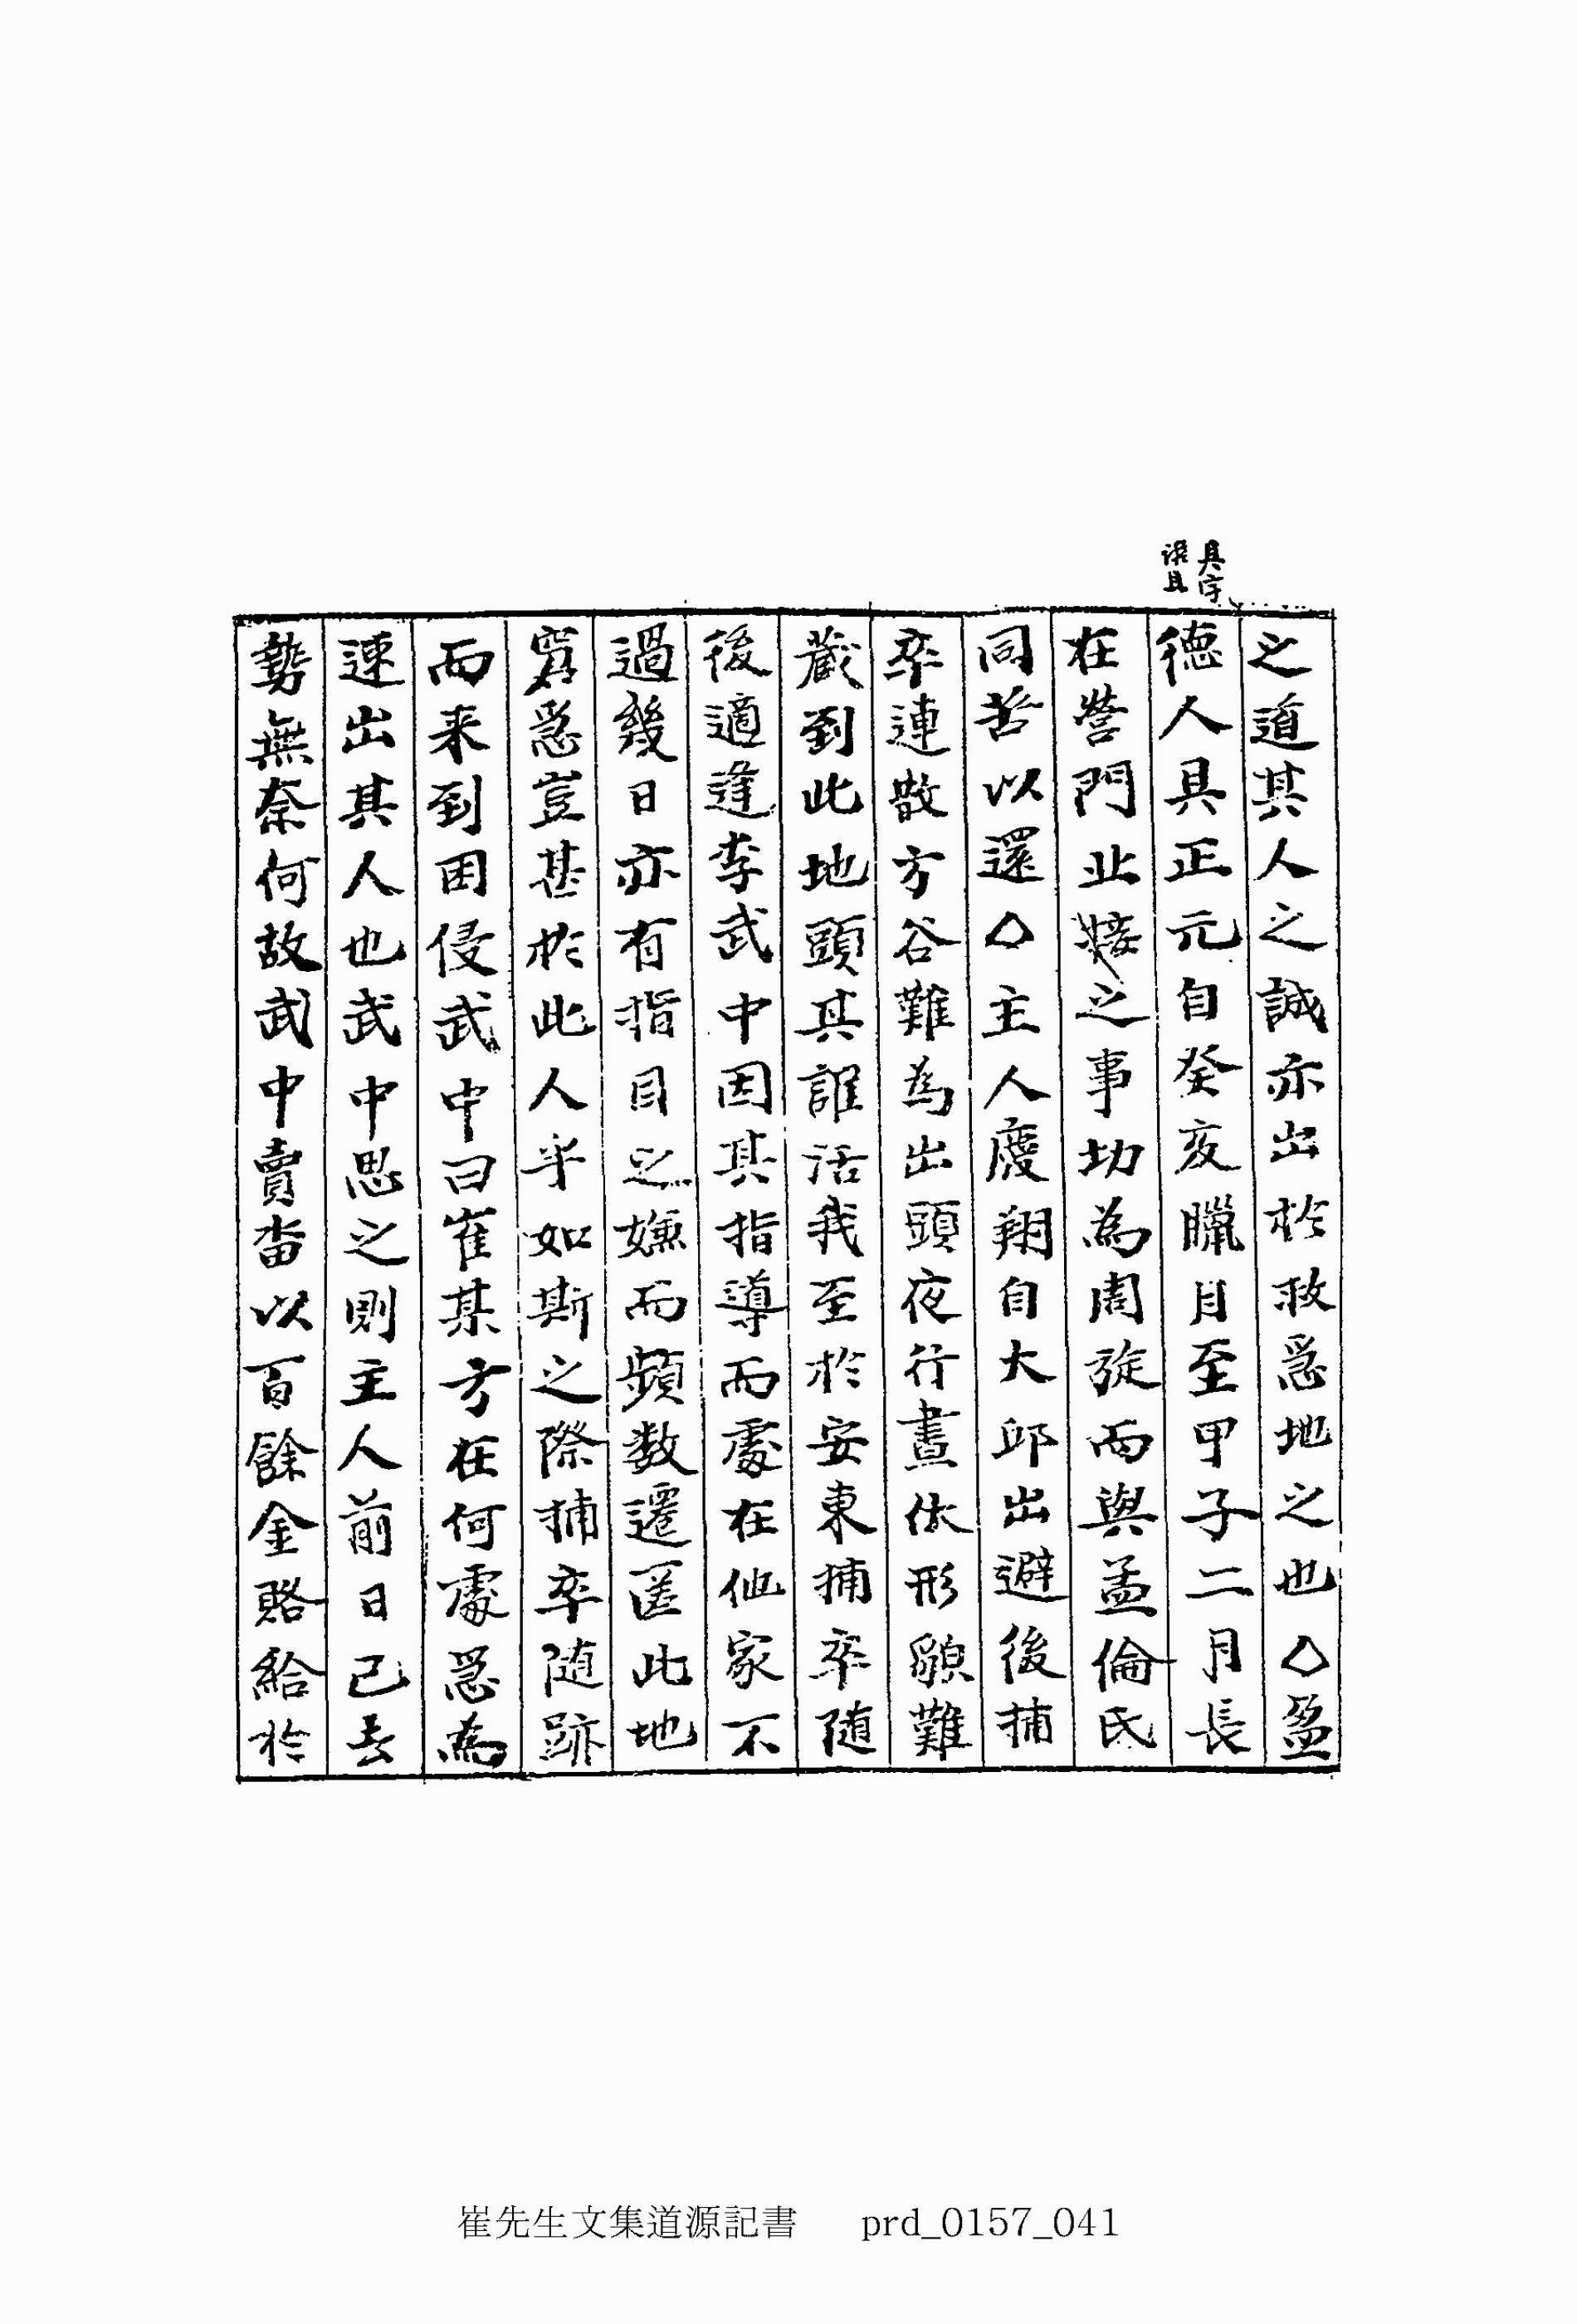 具字
誤且
之道其人之誠亦出於救急地之也◇盈
德人具正元自癸亥臘月至甲子二月長
在營門止接之事功為周旋而與孟倫氏
同苦以還◇主人慶翔自大邱出避後捕
卒連散方谷難為出頭夜行晝休形貌難
藏到此地頭其誰活我至於安東捕卒随
後適逢李武中因其指導而處在他家不
過幾日亦有指目之嫌而頻数遷匿此地
窘急豈甚於此人乎如斯之際捕卒随跡
而来到困侵武中曰崔某方在何處急為
速出其人也武中思之則主人前日已去
勢無奈何故武中賣畓以百餘金賂給於
崔先生文集道源記書 prd_0157_041